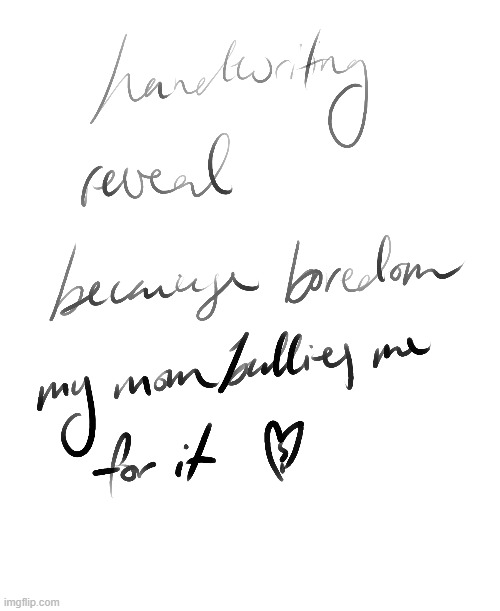 handwriting
reveal
because boredom
my mom bullies me
for it
imgflip.com